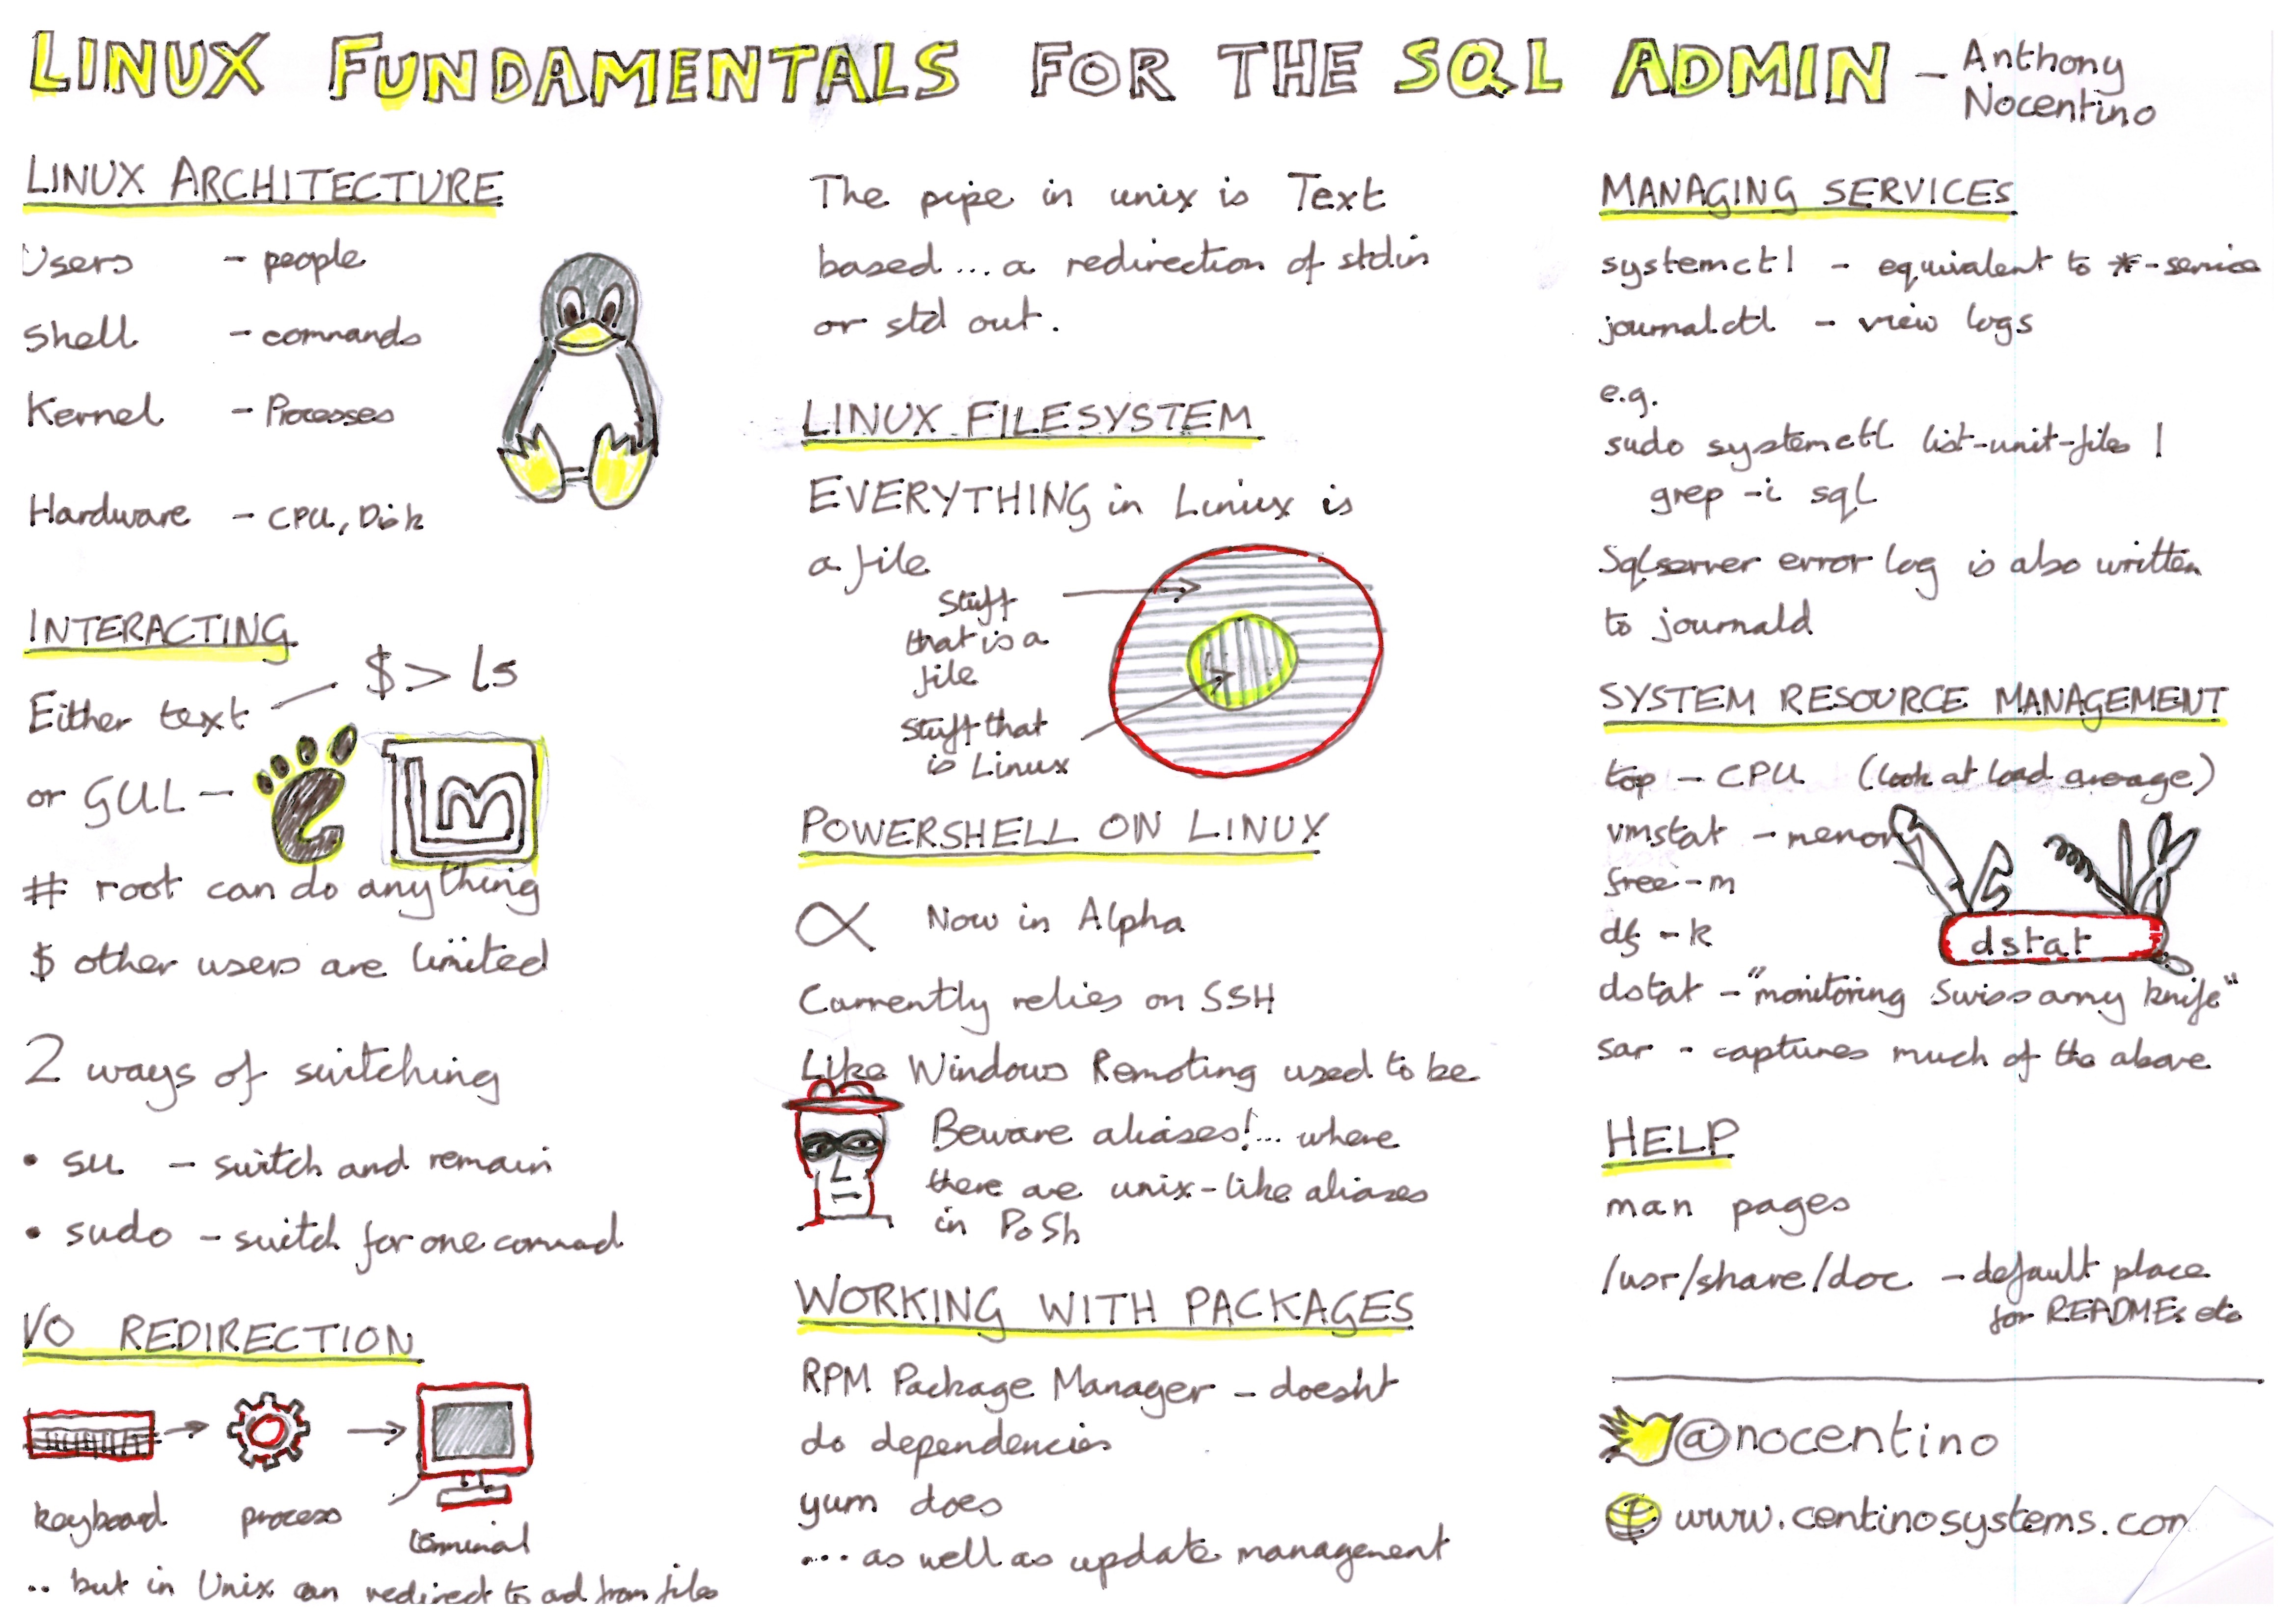 LINUX FUNDAMENTALS FOR THE SQL ADMIN - Anthony
Nocentino
LINUX ARCHITECTURE
Users - people
Shell - commands
Kernel - Processes
Hardware - CPU, Disk
INTERACTING
Either text — $> ls
or GUI -
Lm
# root can do anything
$ other users are limited
2 ways of switching
• su - switch and remain
• sudo - switch for one command
I/O REDIRECTION
keyboard process terminal
.. but in Unix can redirect to and from files
The pipe in unix is Text
based... a redirection of stdin
or std out.
LINUX FILESYSTEM
EVERYTHING in Linux is
a file
Stuff
that is a
file
Stuff that
is Linux
POWERSHELL ON LINUX
∝ Now in Alpha
Currently relies on SSH
Like Windows Remoting used to be
Beware aliases!... where
there are unix-like aliases
in PoSh
WORKING WITH PACKAGES
RPM Package Manager - doesn't
do dependencies
yum does
.... as well as update management
MANAGING SERVICES
systemctl - equivalent to *-service
journalctl - view logs
e.g.
sudo systemctl list-unit-files |
grep -i sql
Sqlserver error log is also written
to journald
SYSTEM RESOURCE MANAGEMENT
top - CPU (look at load average)
vmstat - memory
free -m
df -k
dstat
dstat - "monitoring Swiss army knife"
sar - captures much of the above
HELP
man pages
/usr/share/doc - default place
for READMEs etc
@nocentino
www.centinosystems.com